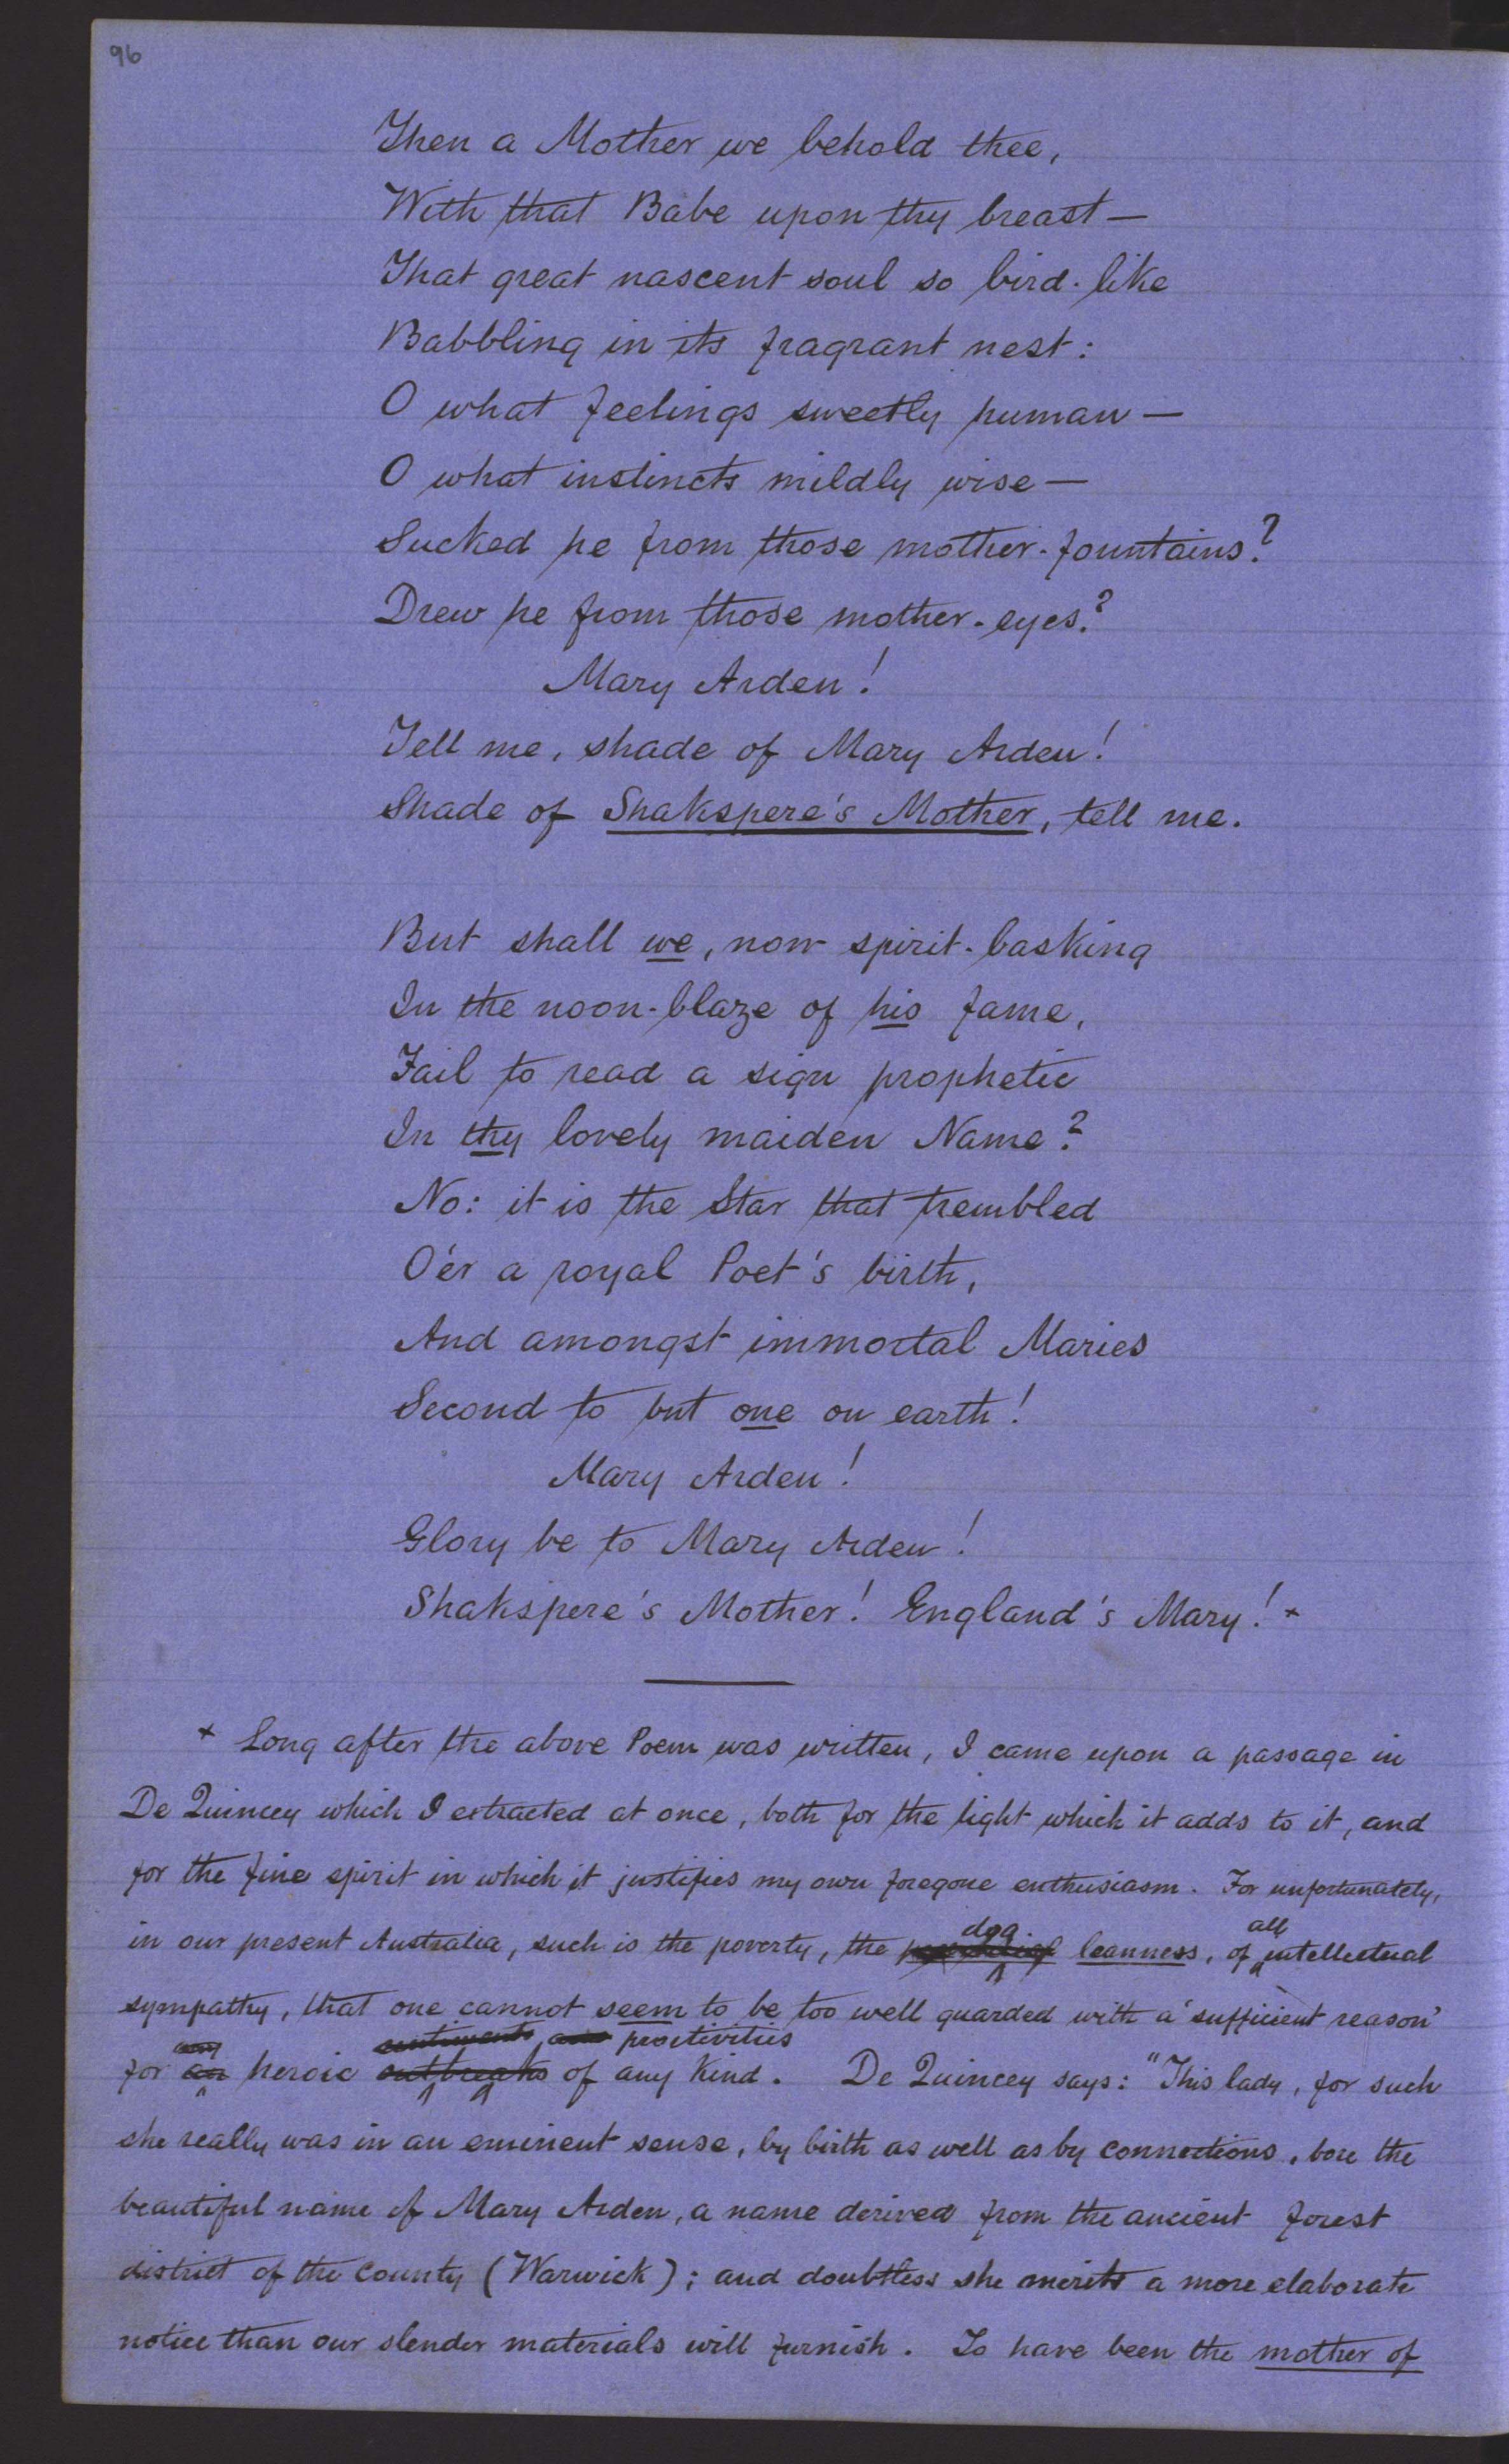 96
Then a Mother we behold thee,
With that Babe upon thy breast —
That great nascent soul so bird-like
Babbling in its fragrant nest:
O what feelings sweetly human —
O what instincts mildly wise —
Sucked he from those mother-fountains?
Drew he from those mother-eyes?
Mary Arden!
Tell me, shade of Mary Arden!
Shade of Shakspere's Mother, tell me.
But shall we, now spirit-basking
In the noon-blaze of his fame,
Fail to read a sign prophetic
In thy lovely maiden Name?
No: it is the Star that trembled
O'er a royal Poet's birth,
And amongst immortal Maries
Second to but one on earth!
Mary Arden!
Glory be to Mary Arden!
Shakspere's Mother! England's Mary! +
+ Long after the above Poem was written, I came upon a passage in
De Quincey which I extracted at once, both for the light which it adds to it, and
for the fine spirit in which it justifies my own foregone enthusiasm. For unfortunately,
dog all
in our present Australia, such is the poverty, the leanness, of intellectual
sympathy, that one cannot seem to be too well guarded with a 'sufficient reason'
any sentiments and proclivities
for an heroic outbreaks of any Kind. De Quincey says: "This lady, for such
she really was in an eminent sense, by birth as well as by connections, bore the
beautiful name of Mary Arden, a name derived from the ancient forest
district of the County (Warwick); and doubtless she merits a more elaborate
notice than our slender materials will furnish. To have been the mother of